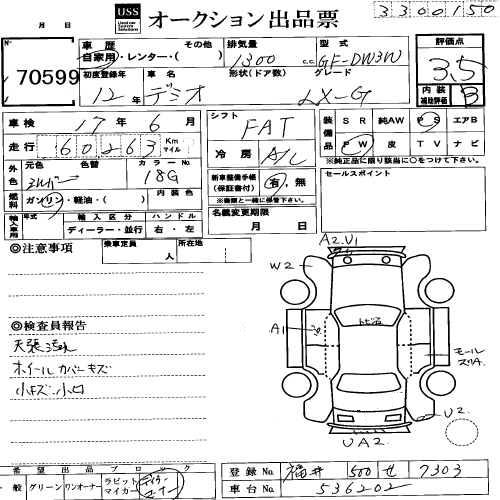 USS Used car System Solutions オークション出品票
3300150
月 日 月 日
70599
車歴 その他 排気量 型式 評価点
自家用・レンター・( ) 1300 cc GF-DW3W 3.5
初度登録年 車名 形状(ドア数) グレード
12年 デミオ LX-G
内装補助評価 B
車検 17年 6月
シフト FAT
装備品 SR 純AW PS エアB
PW 皮 TV ナビ
※純正品に限り該当に○をつけて下さい。
走行 60263 Km マイル
冷房 A/C
セールスポイント
外色 元色 色替 カラーNo.
シルバー 18G
燃料 ガソリン・軽油・( ) 内装色
新車整備手帳(保証書付) 有・無
※書類と一緒に保管下さい。
輸入車用 年式 輸入区分 ハンドル
ディーラー・並行 右・左
名義変更期限
月 日
◎注意事項 乗車定員 人 所在地
A2.V1
W2
A1
トビ石
モールスリA.
U2
UA2
◎検査員報告
天張汚れ
ホイールカバーキズ
小キズ.小凹
希望出品ブロック
一般 グリーン ワンオーナー ラビットマイカー
登録No. 福井 500 せ 7303
車台No. 536202